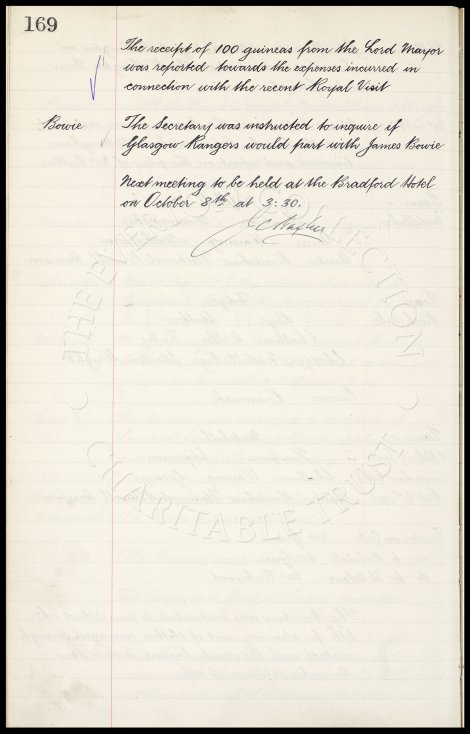 169
The receipt of 100 guineas from the Lord Mayor
was reported towards the expenses incurred in
connection with the recent Royal Visit
Bowie The Secretary was instructed to inquire if
Glasgow Rangers would part with James Bowie
Next meeting to be held at the Bradford Hotel
on October 8th at 3:30.
THE COLLECTION
CHARITABLE TRUST